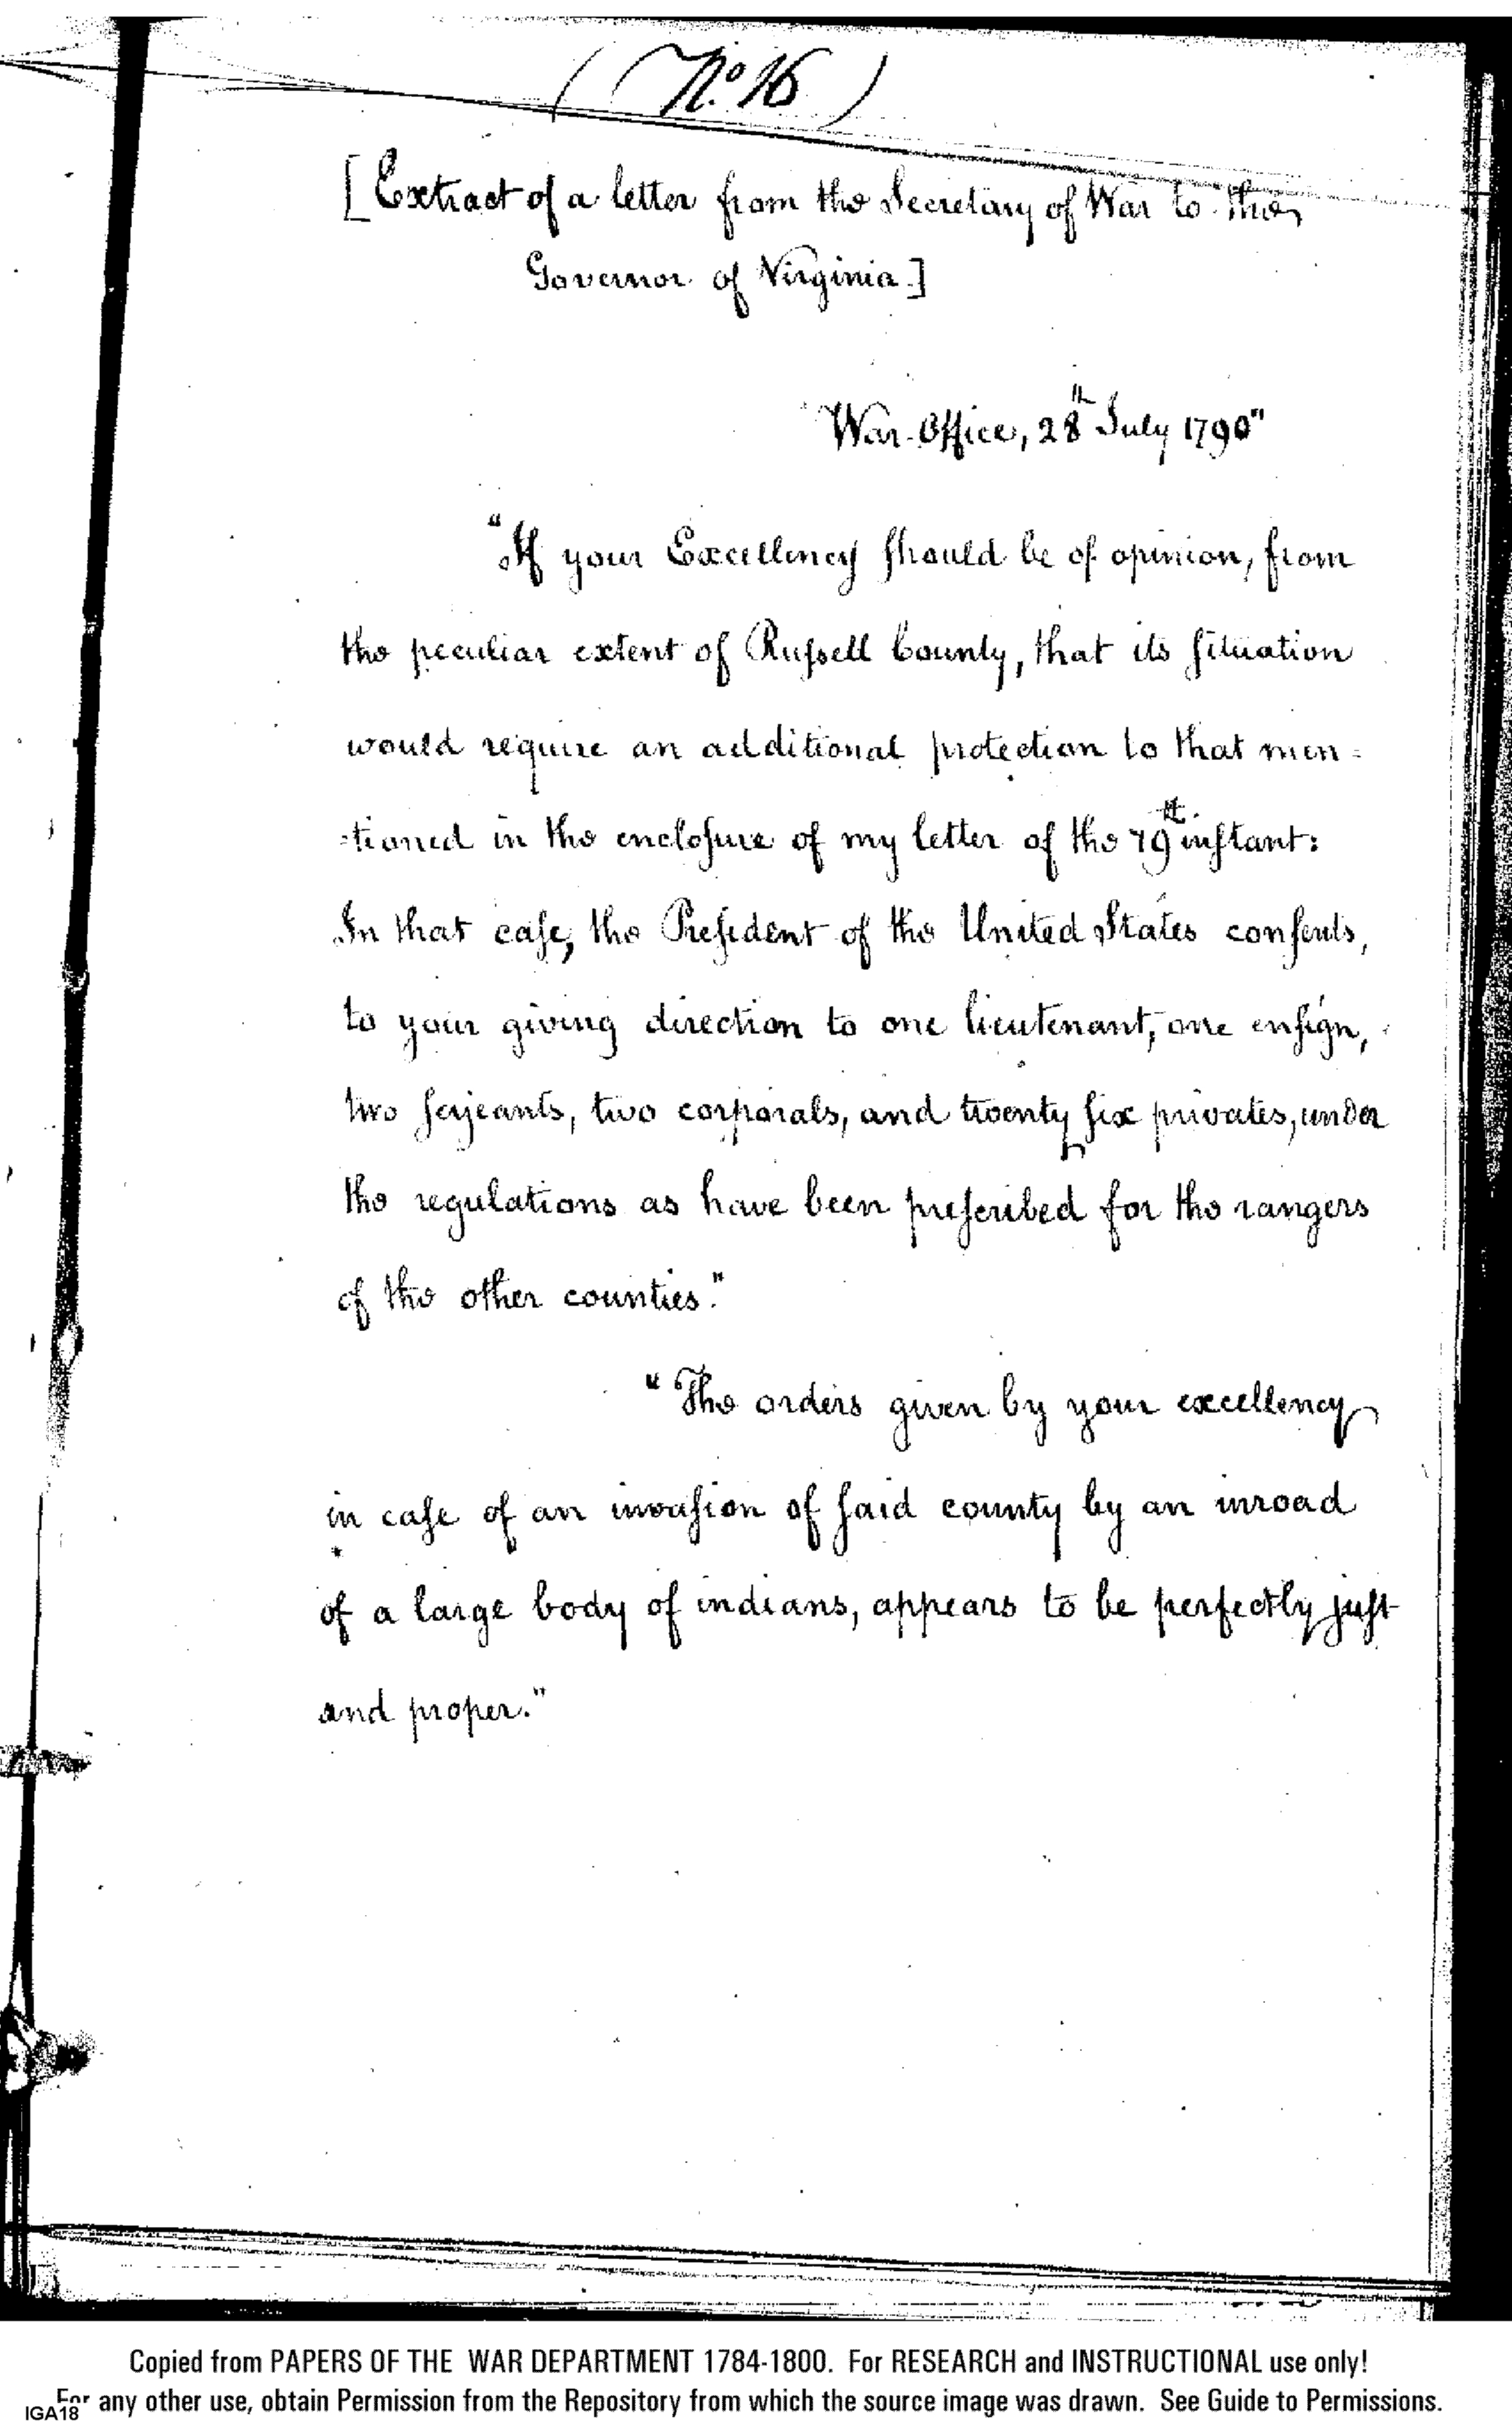 (No. 16)
[Extract of a letter from the Secretary of War to the
Governor of Virginia.]
War-Office, 28th July 1790"
"If your Excellency should be of opinion, from
the peculiar extent of Russell County, that its situation
would require an additional protection to that men=
=tioned in the enclosure of my letter of the 19th instant:
In that case, the President of the United States consents,
to your giving direction to one lieutenant, one ensign,
two serjeants, two corporals, and twenty six privates, under
the regulations as have been prescribed for the rangers
of the other counties."
"The orders given by your excellency
in case of an invasion of said county by an inroad
of a large body of indians, appears to be perfectly just
and proper."
Copied from PAPERS OF THE WAR DEPARTMENT 1784-1800. For RESEARCH and INSTRUCTIONAL use only!
For any other use, obtain Permission from the Repository from which the source image was drawn. See Guide to Permissions.
IGA18